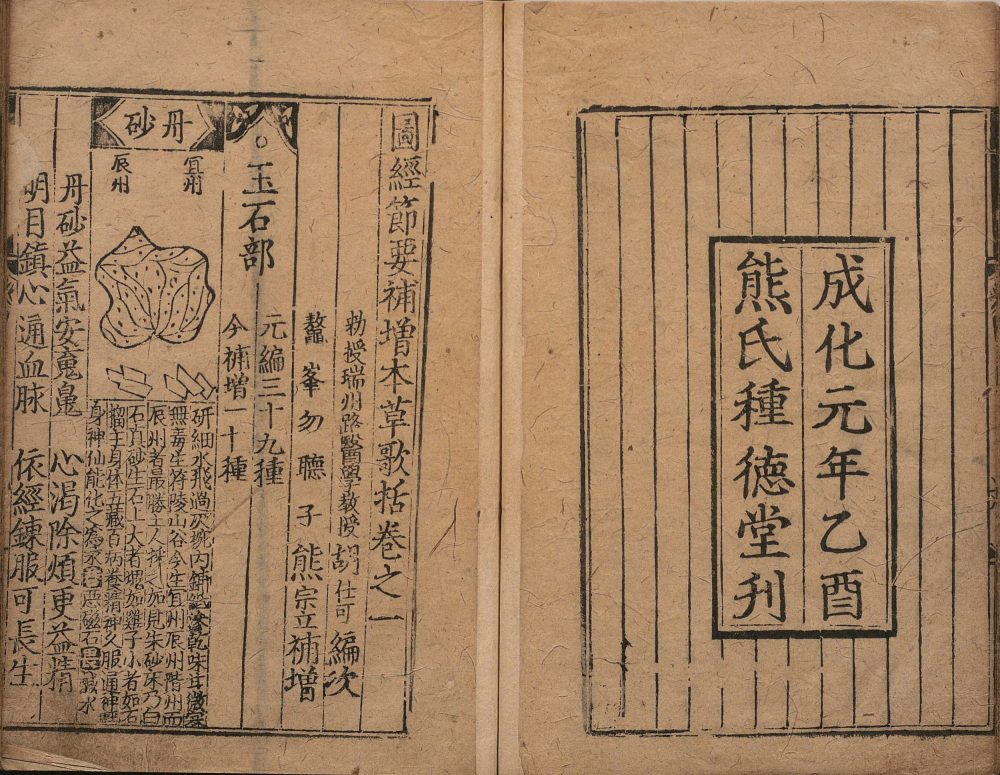 成化元年乙酉
熊氏種德堂刋
圖經節要補增本草歌括卷之一
勑授瑞州路醫學教授胡仕可編次
鼇峯勿聽子熊宗立補增
玉石部
元編三十九種
今補增一十種
丹砂
宜州
辰州
研細水飛過灰椀内鋪紙滲乾味甘微寒
無毒生符陵山谷今生宜州辰州階州而
辰州者最勝土人採之如見朱砂床乃白
石真砂生石上大者如雞子小者如石
榴主身体五藏百病養精神久服通神輕
身神仙能化之爲汞惡磁石畏鹹水
丹砂益氣安魂魄 心渴除煩更益精
明目鎮心通血脉 依經鍊服可長生